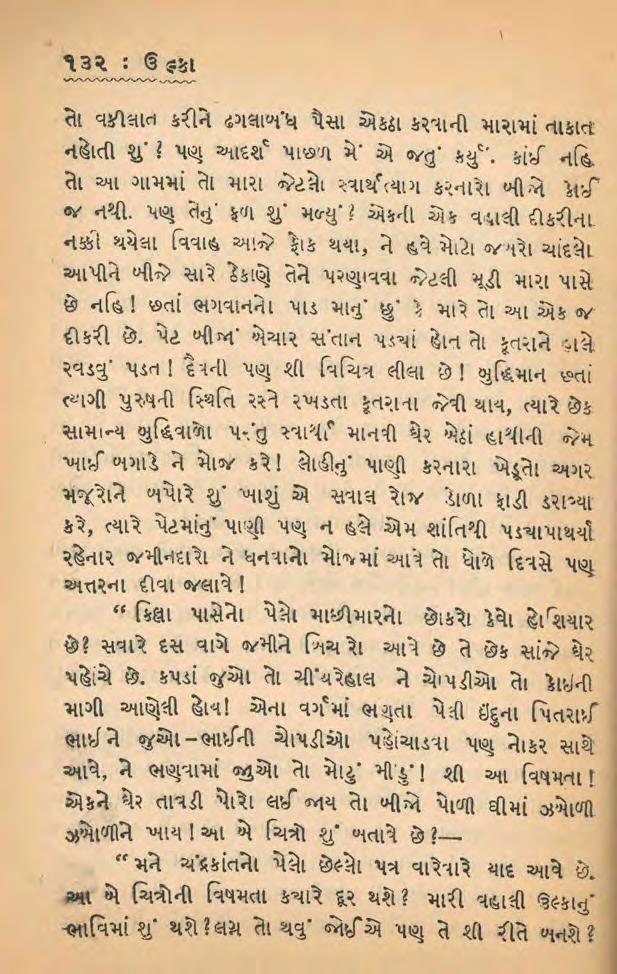 ૧૩૨ : ઉલ્કા
તો વકીલાત કરીને ઢગલાબંધ પૈસા એકઠા કરવાની મારામાં તાકાત
નહોતી શું ? પણ આદર્શ પાછળ મેં એ જતું કર્યું. કાંઈ નહિ
તો આ ગામમાં તો મારા જેટલો સ્વાર્થત્યાગ કરનારો બીજો કોઈ
જ નથી. પણ તેનું ફળ શું મળ્યું ? એકની એક વહાલી દીકરીના
નક્કી થયેલા વિવાહ આજે ફોક થયા, ને હવે મોટો જબરો ચાંદલો
આપીને બીજે સારે ઠેકાણે તેને પરણાવવા જેટલી મૂડી મારા પાસે
છે નહિ ! છતાં ભગવાનનો પાડ માનું છું કે મારે તો આ એક જ
દીકરી છે. પેટ બીજાં બેચાર સંતાન પડ્યાં હોત તો કૂતરાને હાલે
રવડવું પડત ! દૈવની પણ શી વિચિત્ર લીલા છે ! બુદ્ધિમાન છતાં
ત્યાગી પુરુષની સ્થિતિ રસ્તે રખડતા કૂતરાના જેવી થાય, ત્યારે છેક
સામાન્ય બુદ્ધિવાળો પરંતુ સ્વાર્થી માનવી ઘેર બેઠાં હાથીની જેમ
ખાઈ બગાડે ને મોજ કરે ! લોહીનું પાણી કરનારા ખેડૂતો અગર
મજૂરોને બપોરે શું ખાશું એ સવાલ રોજ ડોળા ફાડી ડરાવ્યા
કરે, ત્યારે પેટમાંનું પાણી પણ ન હલે એમ શાંતિથી પડ્યાપાથર્યા
રહેનાર જમીનદારો ને ધનવાનો મોજમાં આવે તો ધોળે દિવસે પણ
અત્તરના દીવા જલાવે !
“ કિલ્લા પાસેનો પેલો માછીમારનો છોકરો કેવો હોશિયાર
છે? સવારે દસ વાગે જમીને બિચારો આવે છે તે છેક સાંજે ઘેર
પહોંચે છે. કપડાં જુઓ તો ચીંથરેહાલ ને ચોપડીઓ તો કોઇની
માગી આણેલી હોય! એના વર્ગમાં ભણતા પેલી ઇંદુના પિતરાઈ
ભાઈને જુઓ–ભાઈની ચોપડીઓ પહોંચાડવા પણ નોકર સાથે
આવે, ને ભણવામાં જુઓ તો મોટું મીંડું! શી આ વિષમતા !
એકને ઘેર તાવડી પોરો લઈ જાય તો બીજો પોળી ઘીમાં ઝબોળી
ઝબોળીને ખાય ! આ બે ચિત્રો શું બતાવે છે ?—
“ મને ચંદ્રકાંતનો પેલો છેલ્લો પત્ર વારેવારે યાદ આવે છે.
આ બે ચિત્રોની વિષમતા ક્યારે દૂર થશે ? મારી વહાલી ઉલ્કાનું
ભાવિમાં શું થશે ? લગ્ન તો થવું જોઈએ પણ તે શી રીતે બનશે ?